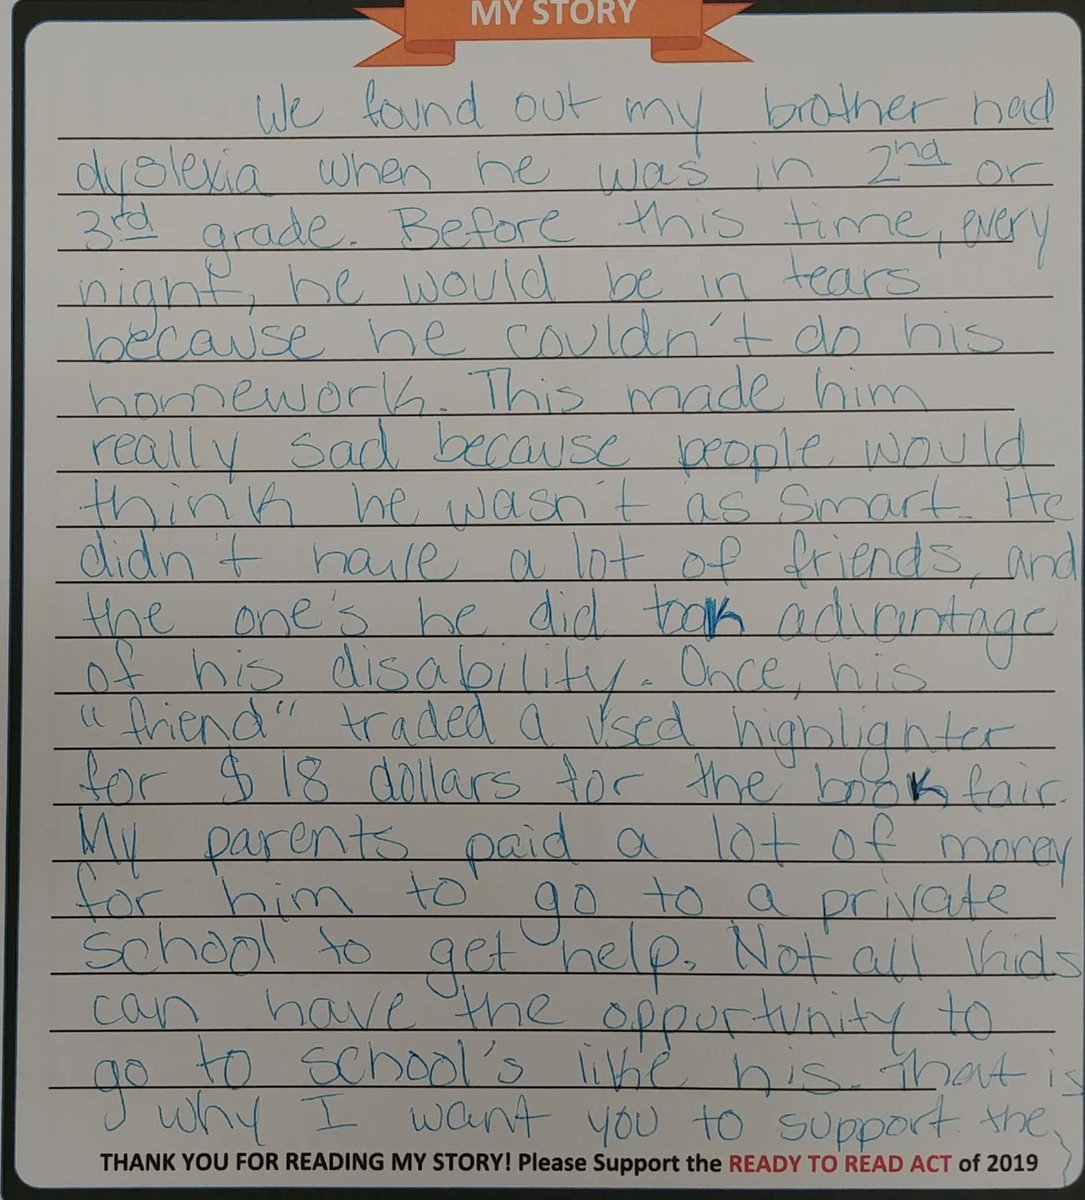 MY STORY
We found out my brother had
dyslexia when he was in 2nd or
3rd grade. Before this time, every
night, he would be in tears
because he couldn't do his
homework. This made him
really sad because people would
think he wasn't as smart. He
didn't have a lot of friends, and
the one's he did took advantage
of his disability. Once, his
"friend" traded a used highlighter
for $18 dollars for the book fair.
My parents paid a lot of money
for him to go to a private
school to get help. Not all kids
can have the opportunity to
go to school's like his. That is
why I want you to support the
THANK YOU FOR READING MY STORY! Please Support the READY TO READ ACT of 2019